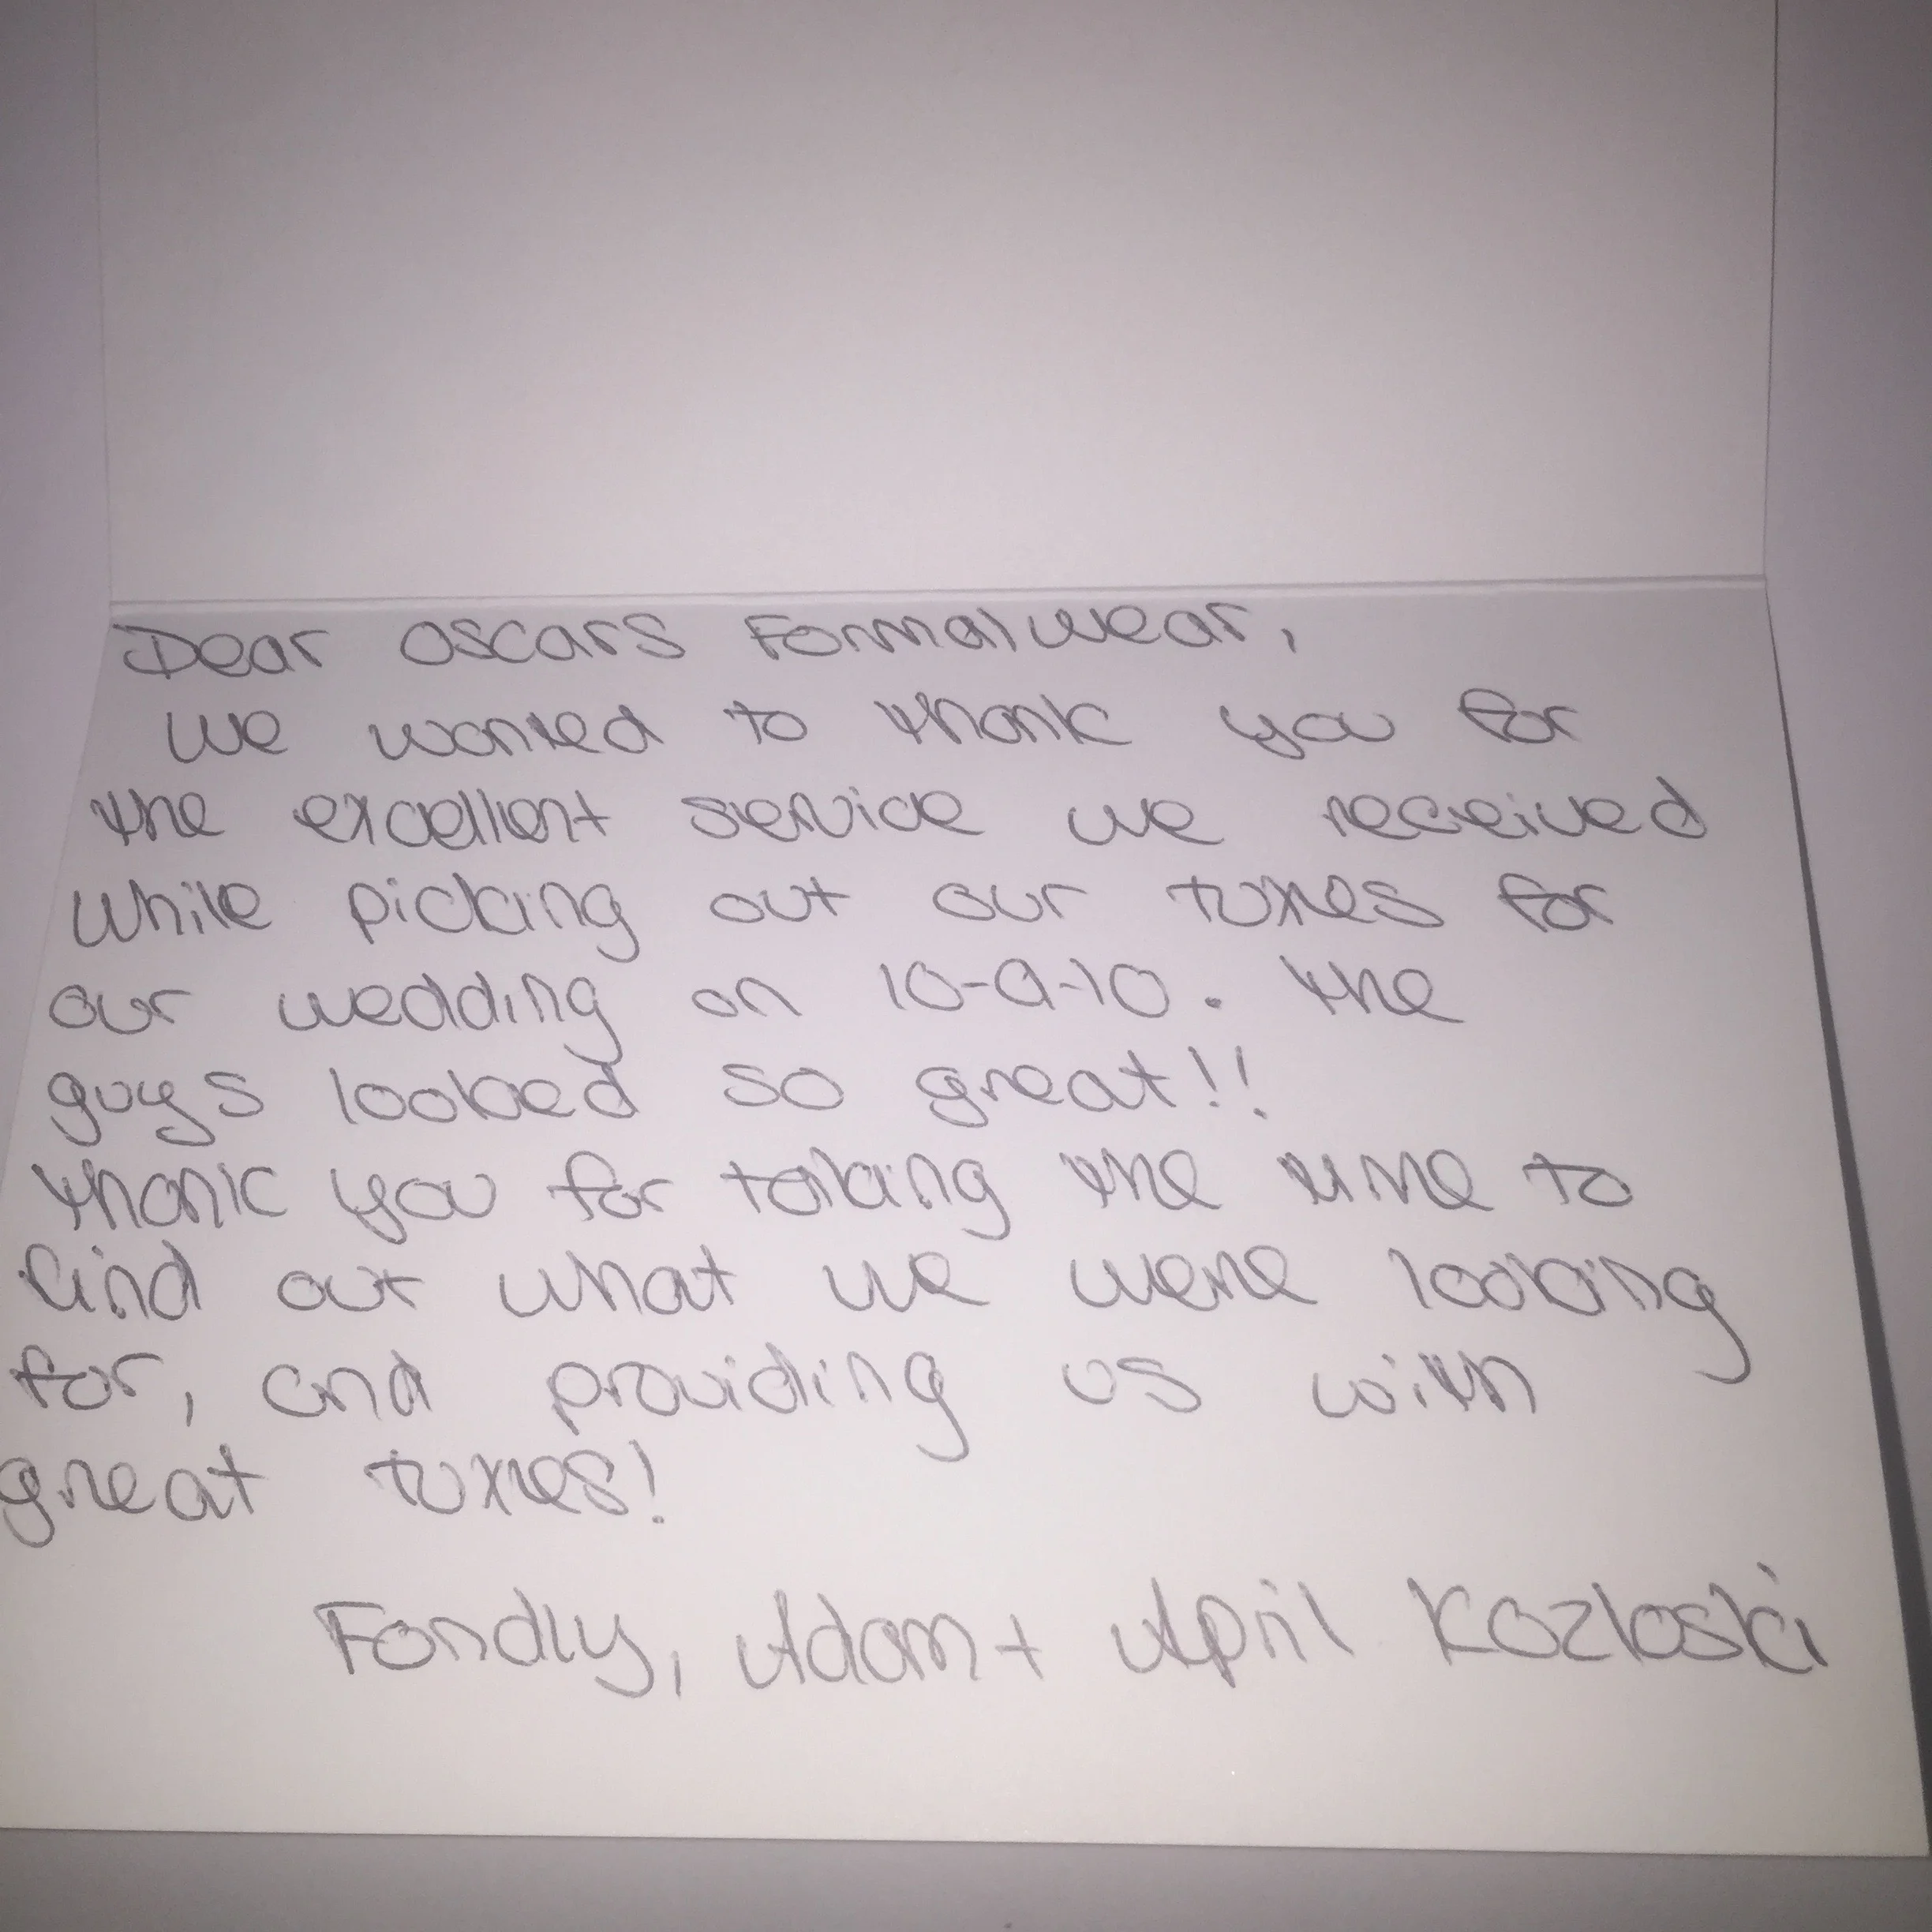 Dear Oscars Formalwear,
We wanted to thank you for
the excellent service we received
while picking out our tuxes for
our wedding on 10-9-10. The
guys looked so great!!
Thank you for taking the time to
find out what we were looking
for, and providing us with
great tuxes!
Fondly, Adam + April Kozloski